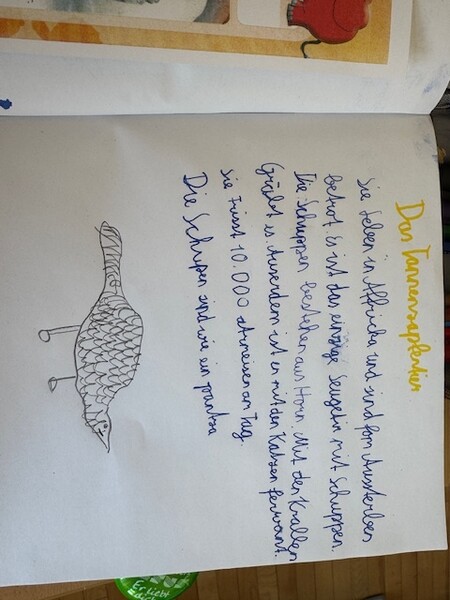 Das Tannenzapfentier
Sie leben in Affricka und sind fom Aussterben
betrot. Es ist das einzige Seugetir mit Schuppen.
Die Schuppen bestehen aus Horn. Mit den Krallen
Gräbt es. Auserdem ist er mit den Katzen ferwant.
Sie Frisst 10.000 ameisen am Tag.
Die Schupen sind wie ein pantza
Er liebt
dich